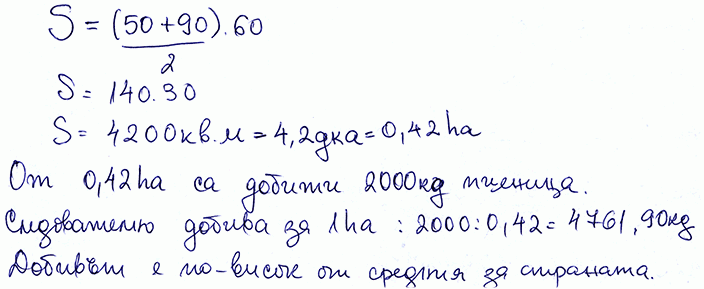 S = (50+90).60
2
S = 140.30
S = 4200кв.м = 4,2дка = 0,42ha
От 0,42ha са добити 2000кg пшеница.
Следователно добива за 1ha : 2000:0,42 = 4761,90кg
Добивът е по-висок от средния за страната.